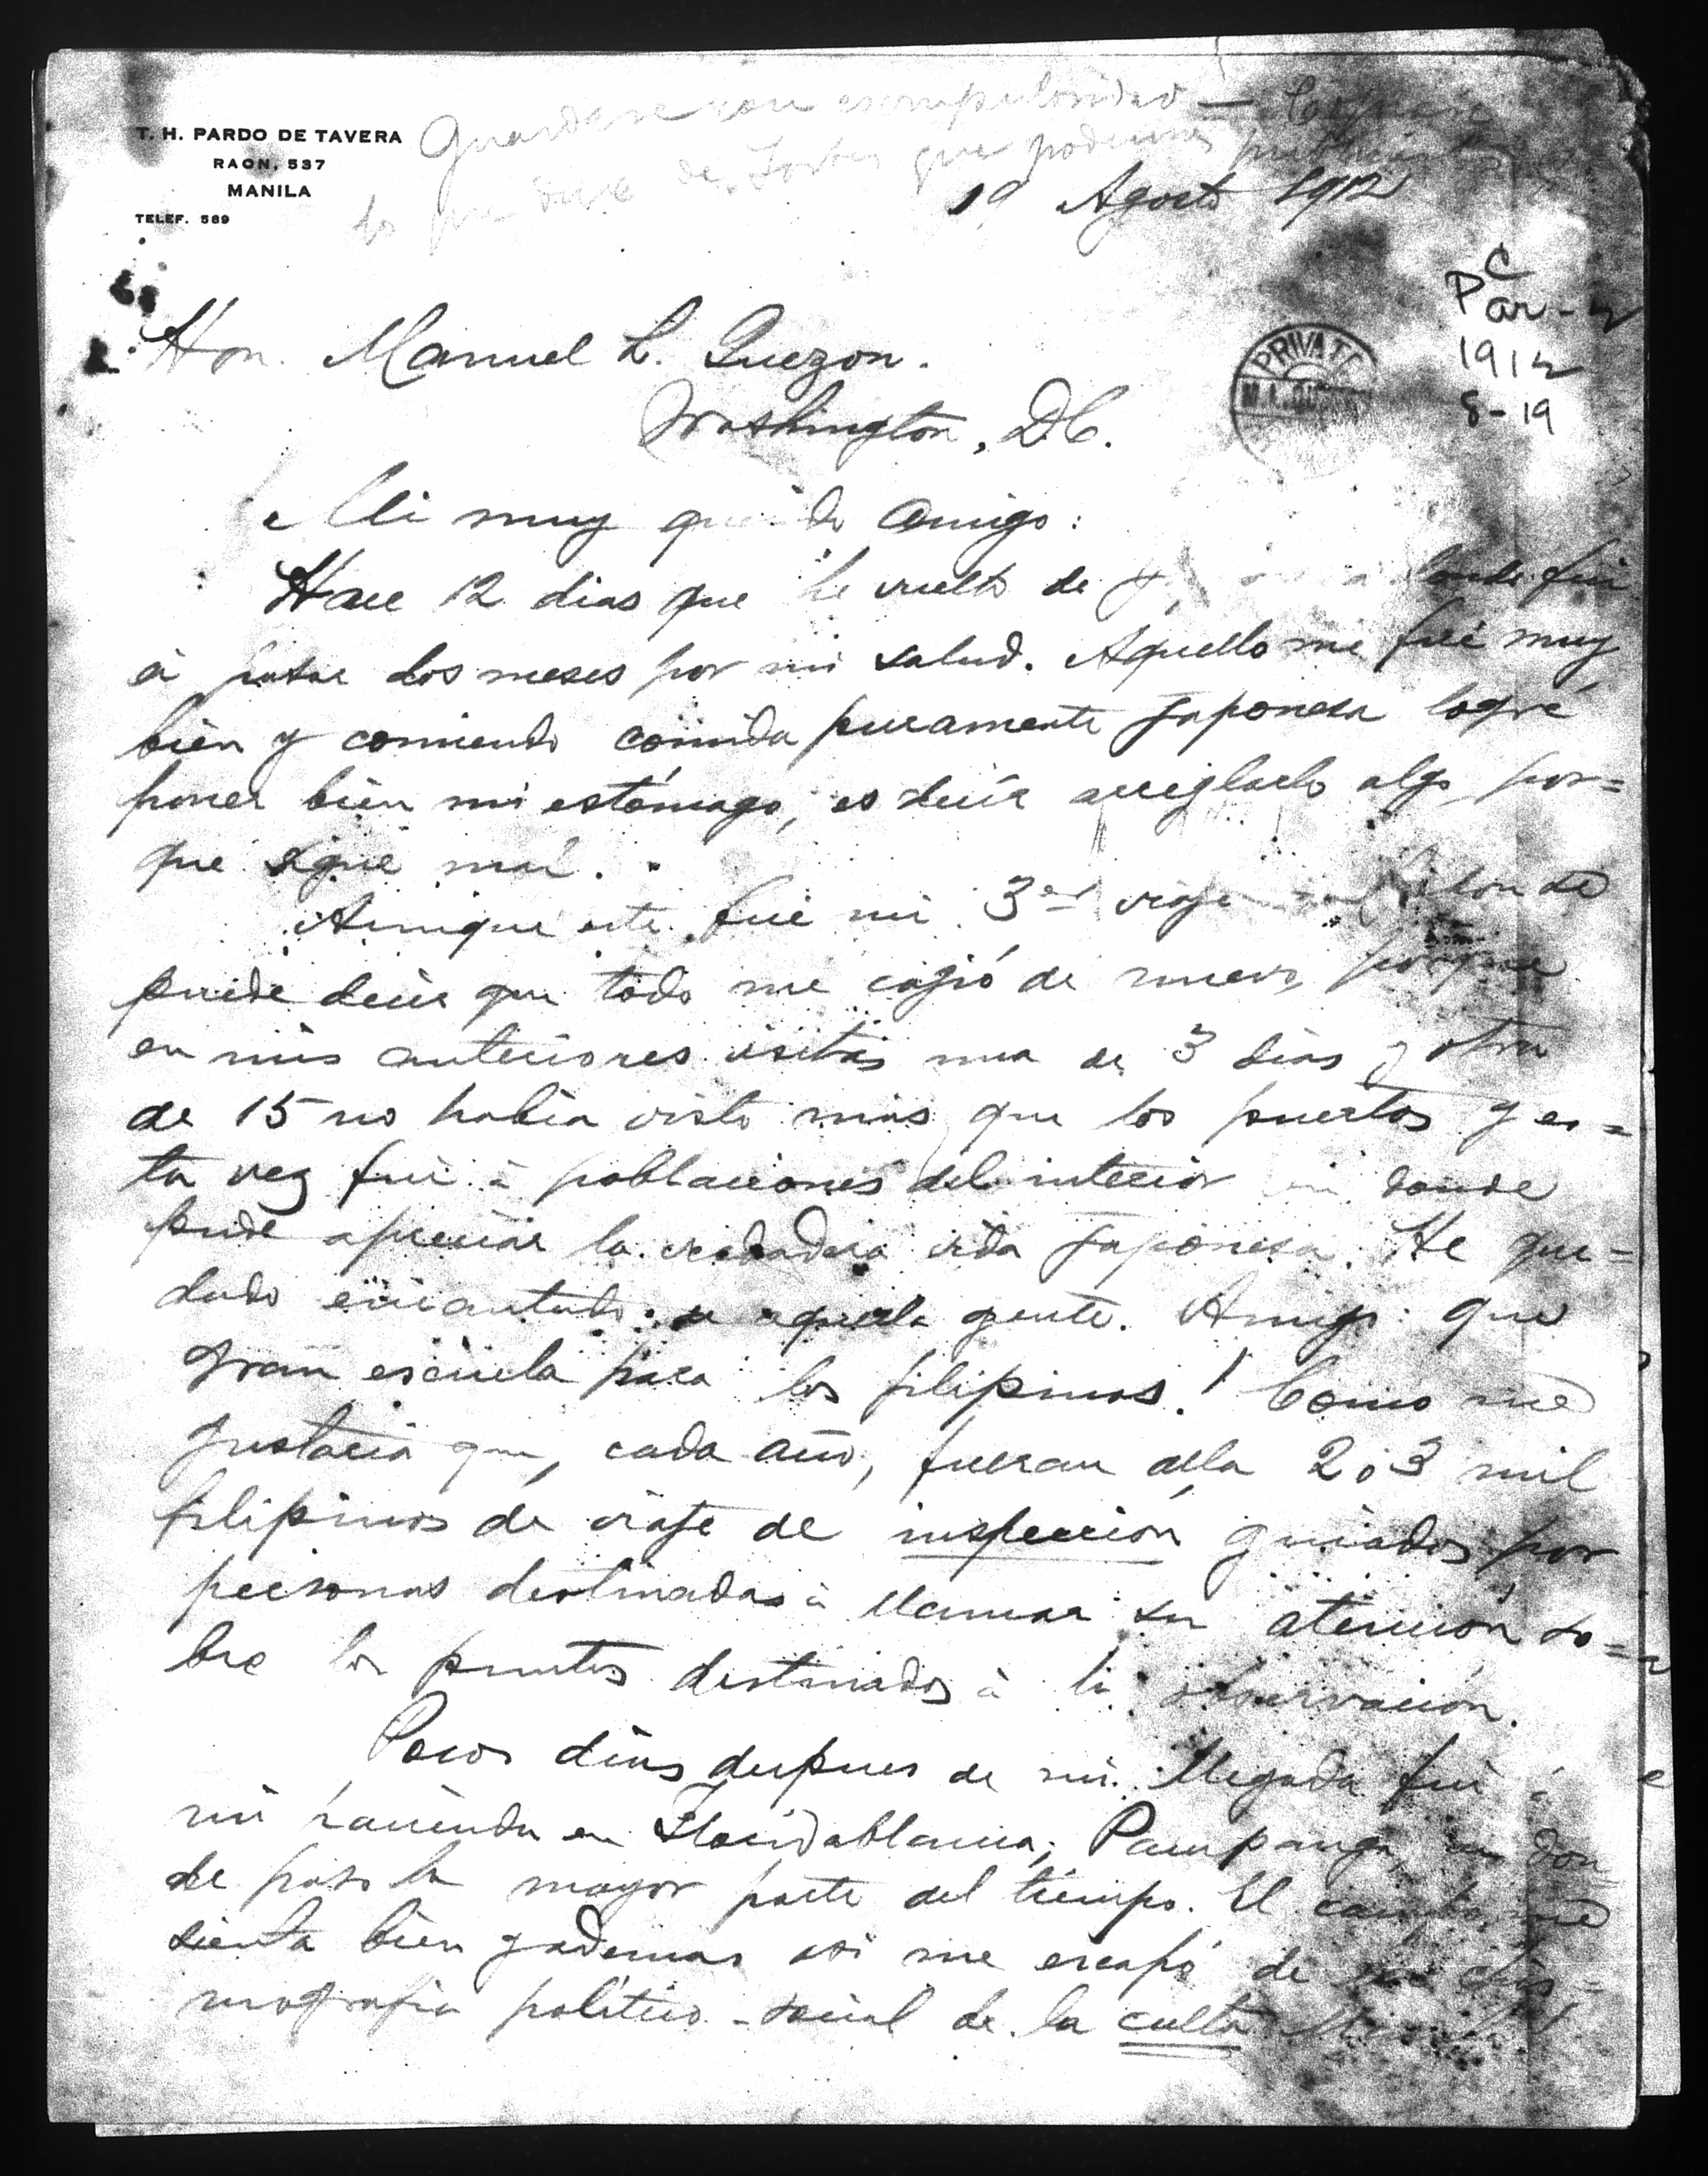 T. H. PARDO DE TAVERA
RAON, 537
MANILA
TELEF. 589
Guardese con escrupulosidad —
lo que dice de Forbes que podemos
19 Agosto 1912
C
Par-
1912
8-19
PRIVATE
Hon. Manuel L. Quezon.
Washington, D.C.
Mi muy querido amigo:
Hace 12 dias que he vuelto de donde fui
á pasar dos meses por mi salud. Aquello me fué muy
bien y comiendo comida puramente japonesa logré
poner bien mi estómago, es decir arreglarlo algo por=
que sigue mal.
Aunque este fué mi 3er viaje
puede decir que todo me cogió de nuevo, porque
en mis anteriores visitas una de 3 dias y otra
de 15 no habia visto mas que los puertos y es=
ta vez fui á poblaciones del interior en donde
pude apreciar la verdadera vida japonesa. He que=
dado encantado de aquella gente. Amigo que
gran escuela para los filipinos! Como me
gustaria que, cada año, fueran alla 2 ó 3 mil
filipinos de viaje de inspección guiados por
personas destinadas á llamar su atencion so=
bre los puntos destinados á la observación.
Pocos dias despues de mi llegada fui á
mi hacienda en Floridablanca, Pampanga, en don
de paso la mayor parte del tiempo. El campo me
sienta bien y ademas asi me escapo de la chis=
mografia politico-social de la culta Manila!